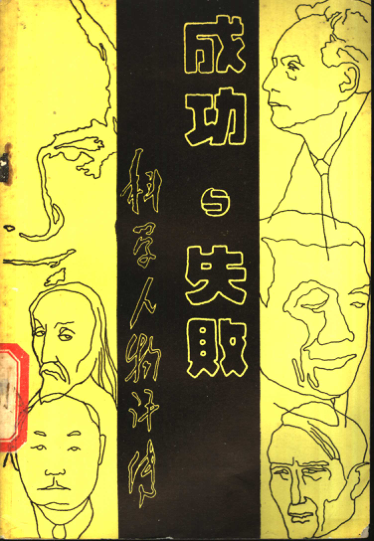 成功与失败
科学人物评传